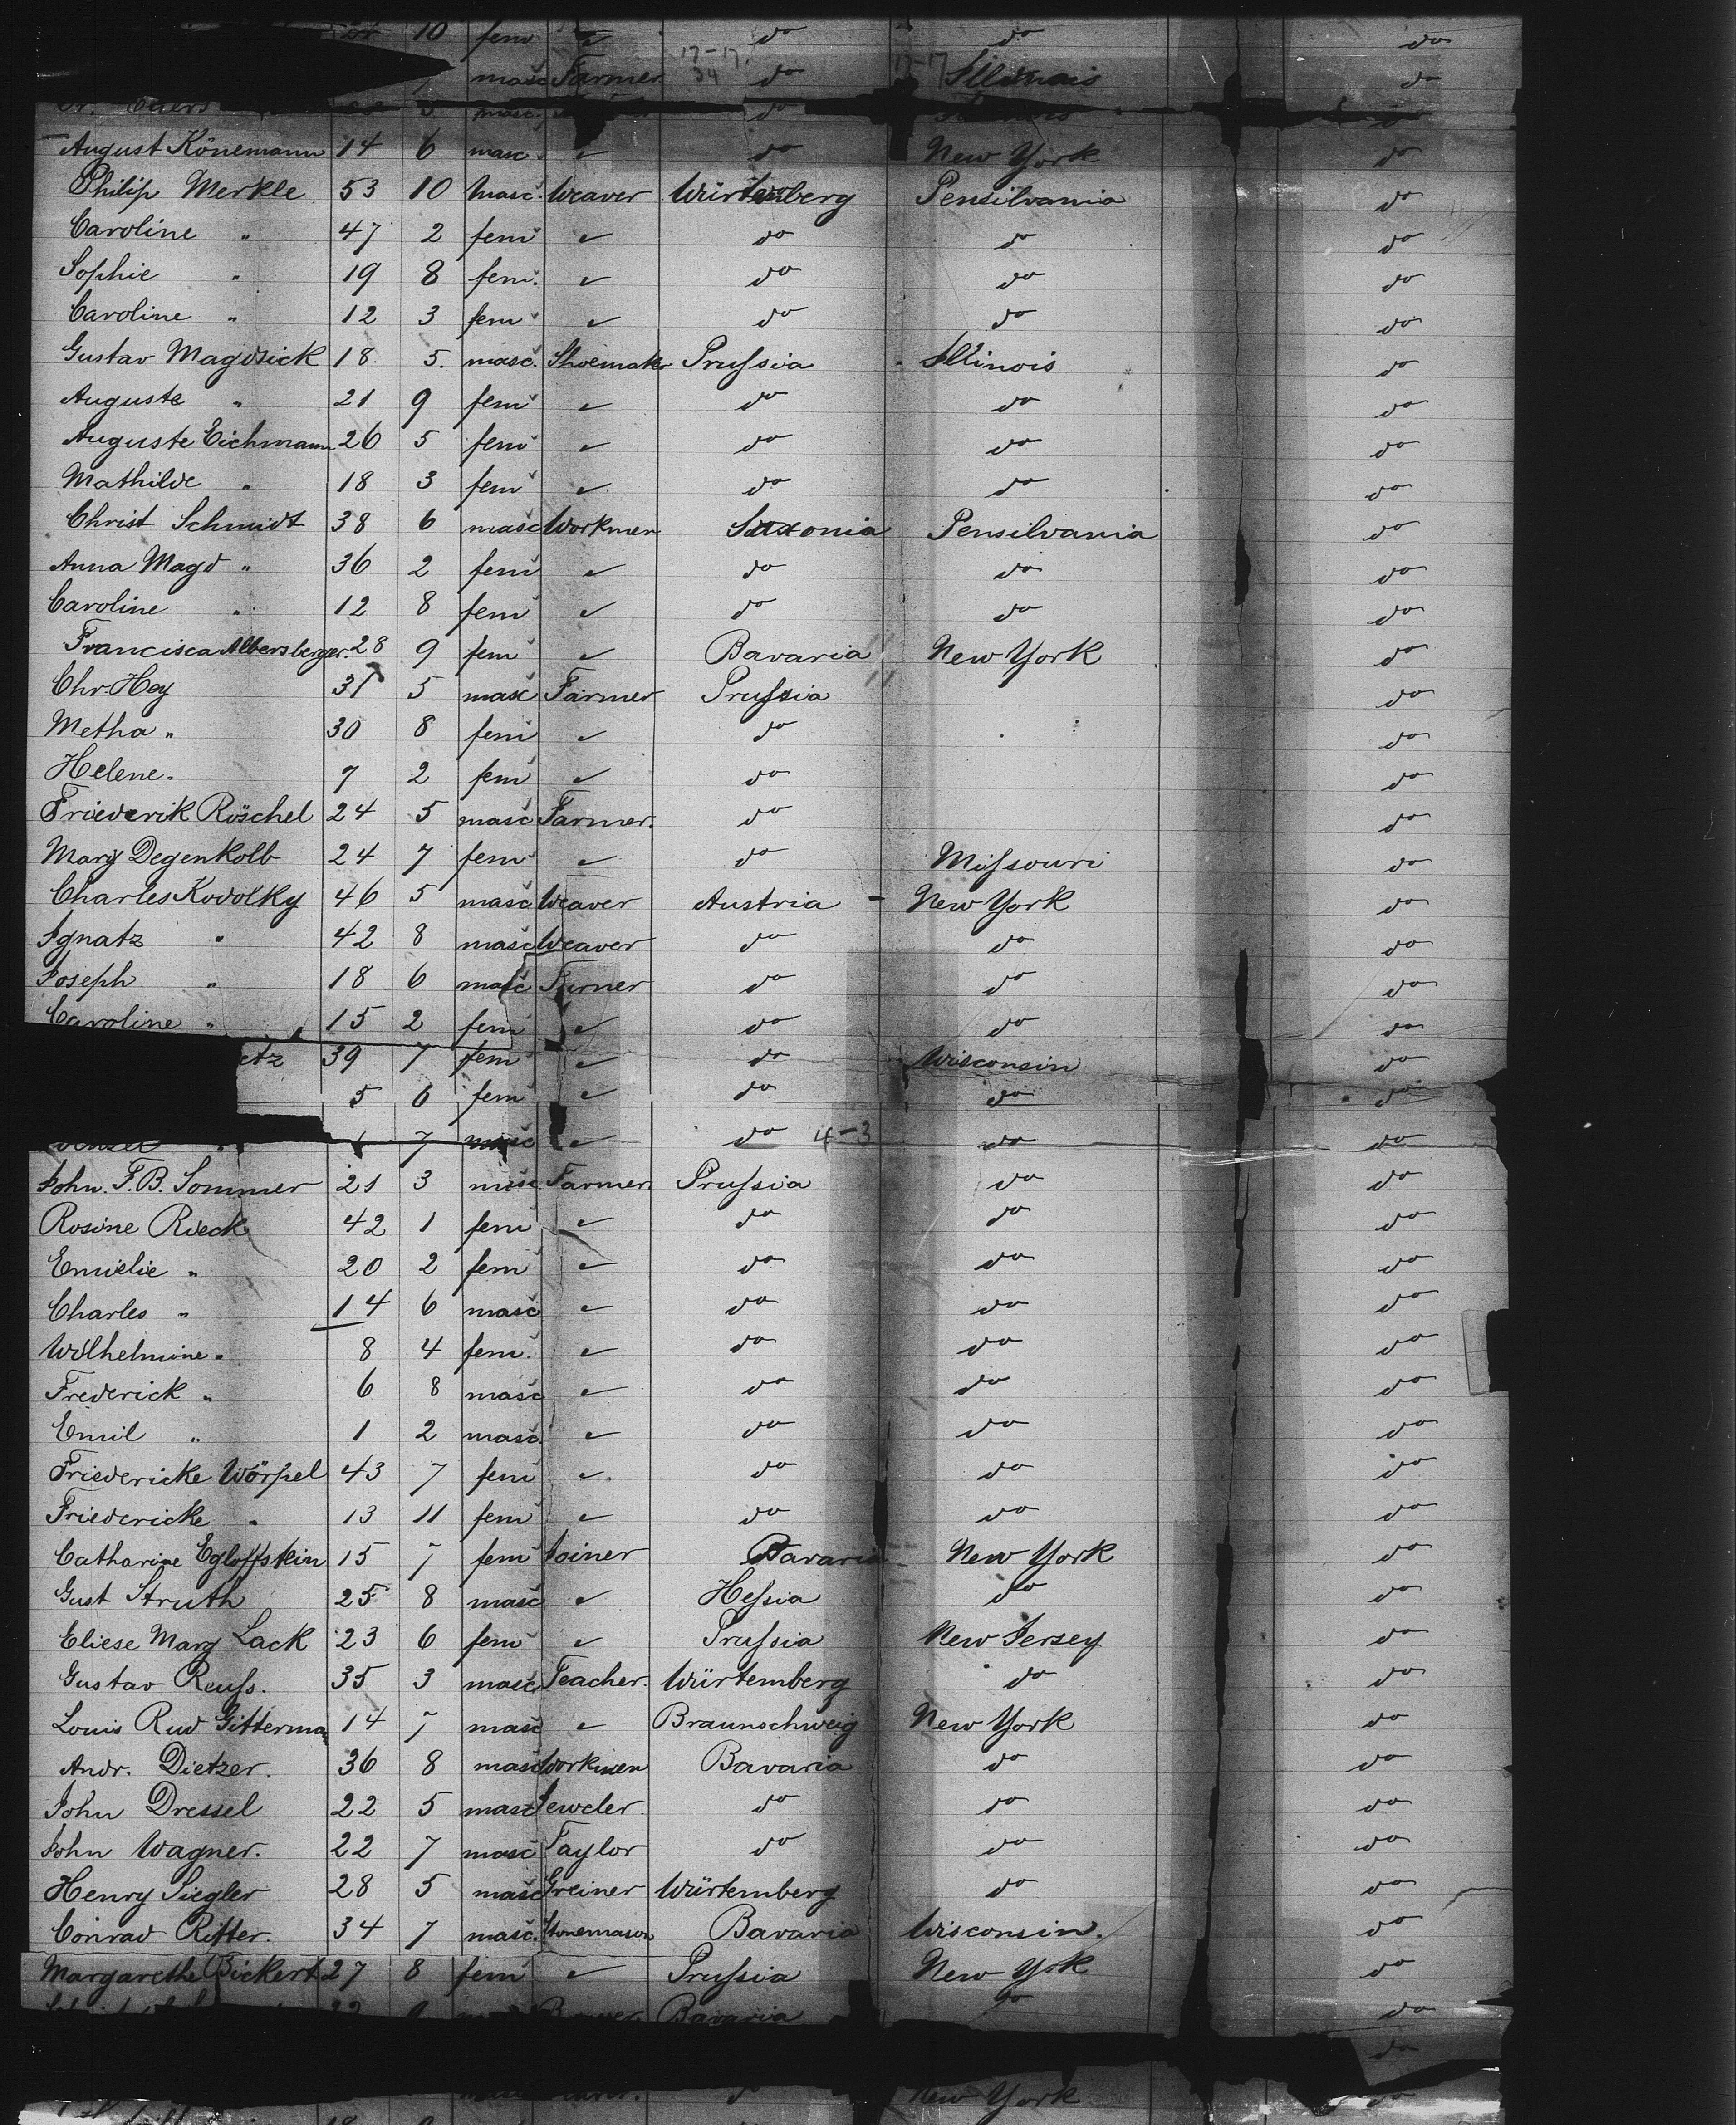 10 fem " do do do
masc Farmer 17-17. 34 do 17-17 Illinois do
masc do
August Könemann 14 6 masc " do New York do
Philip Merkle 53 10 masc. Weaver Würtemberg Pensilvania do
Caroline " 47 2 fem " do do do
Sophie " 19 8 fem. " do do do
Caroline " 12 3 fem " do do do
Gustav Magdsick 18 5. masc. Shoemaker Prussia Illinois do
Auguste " 21 9 fem " do do do
Auguste Eichmann 26 5 fem " do do do
Mathilde " 18 3 fem " do do do
Christ Schmidt 38 6 masc Workmen Saxonia Pensilvania do
Anna Magd " 36 2 fem " do do do
Caroline " 12 8 fem " do do do
Francisca Albersberger. 28 9 fem " Bavaria New York do
Chr. Hey 31 5 masc Farmer Prussia do
Metha " 30 8 fem " do do
Helene " 7 2 fem " do do
Friederik Röschel 24 5 masc Farmer. do do
Mary Degenkolb 24 7 fem " do Missouri do
Charles Kodolky 46 5 masc Weaver Austria - New York do
Ignatz " 42 8 masc Weaver do do do
Joseph " 18 6 masc Turner do do do
Caroline " 15 2 fem " do do do
etz 39 7 fem " do Wisconsin do
5 6 fem " do do do
7 masc " do 4-3 do do
John. F. B. Sommer 21 3 masc Farmer Prussia do do
Rosine Rieck 42 1 fem " do do do
Emielie " 20 2 fem " do do do
Charles " 14 6 masc " do do do
Wilhelmine " 8 4 fem. " do do do
Frederick " 6 8 masc " do do do
Emil " 1 2 masc. " do do do
Friedericke Wörpel 43 7 fem " do do do
Friedericke " 13 11 fem " do do do
Catharine Egloffstein 15 7 fem Joiner Bavaria New York do
Gust Struth 25 8 masc " Hessia do do
Eliese Marg Lack 23 6 fem " Prussia New Jersey do
Gustav Reuss. 35 3 masc Teacher. Würtemberg do do
Louis Rud Gitterman 14 7 masc " Braunschweig New York do
Andr. Dietzer. 36 8 masc Workmen Bavaria do do
John Dressel 22 5 masc Jeweler do do do
John Wagner. 22 7 masc Taylor do do do
Henry Siegler 28 5 masc Greiner Würtemberg do do
Conrad Ritter. 34 7 masc. Stonemason Bavaria Wisconsin. do
Margarethe Bickert 27 8 fem " Prussia New York do
Bavaria do do
do
New York do